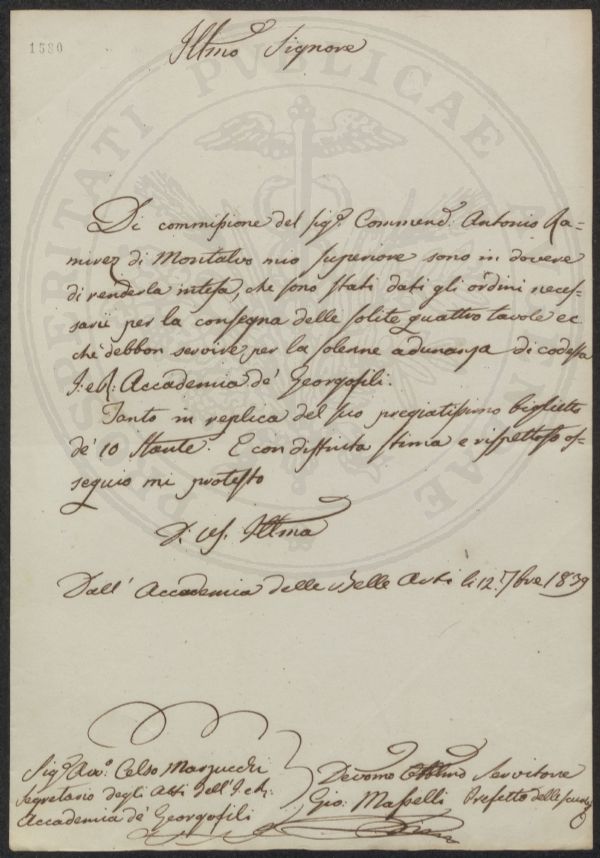 1580
Illmo Signore
PROSPERITATI PVBLICAE AVGENDAE
Di commissione del Sigr. Commend. Antonio Ra=
mirez di Montalvo mio Superiore sono in dovere
di renderla intesa, che sono stati dati gli ordini neces=
sarii per la consegna delle solite quattro tavole ec
che debbon servire per la solenne adunanza di codesta
I. e R. Accademia de' Georgofili.
Tanto in replica del suo pregiatissimo biglietto
de' 10 Stante. E con distinta stima e rispettoso os=
sequio mi protesto
D. VS. Illma
Dall' Accademia delle Belle Arti li 12. 7bre 1839
Sigr. Avv. Celso Marzucchi
Segretario degli Atti dell' I. e R.
Accademia de' Georgofili
Devomo Obblmo Servitore
Gio: Masselli Prefetto delle Scuole